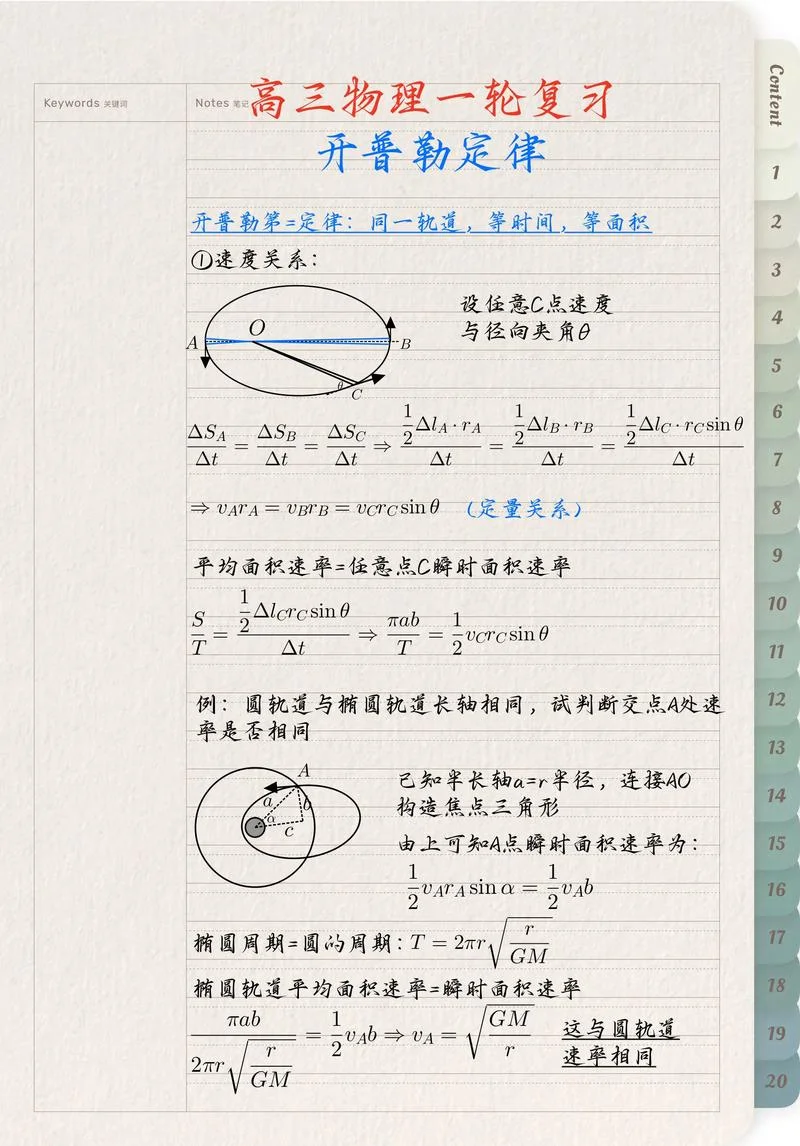 Keywords 关键词
Notes 笔记
高三物理一轮复习
开普勒定律
开普勒第二定律：同一轨道，等时间，等面积
①速度关系：
设任意C点速度
与径向夹角θ
A O B
θ C
ΔS_A/Δt = ΔS_B/Δt = ΔS_C/Δt ⇒ (1/2 Δl_A · r_A)/Δt = (1/2 Δl_B · r_B)/Δt = (1/2 Δl_C · r_C sin θ)/Δt
⇒ v_A r_A = v_B r_B = v_C r_C sin θ （定量关系）
平均面积速率=任意点C瞬时面积速率
S/T = (1/2 Δl_C r_C sin θ)/Δt ⇒ πab/T = 1/2 v_C r_C sin θ
例：圆轨道与椭圆轨道长轴相同，试判断交点A处速
率是否相同
A
a b
α c
已知半长轴a=r半径，连接AO
构造焦点三角形
由上可知A点瞬时面积速率为：
1/2 v_A r_A sin α = 1/2 v_A b
椭圆周期=圆的周期：T = 2πr√(r/GM)
椭圆轨道平均面积速率=瞬时面积速率
πab/(2πr√(r/GM)) = 1/2 v_A b ⇒ v_A = √(GM/r)
这与圆轨道
速率相同
Content
1
2
3
4
5
6
7
8
9
10
11
12
13
14
15
16
17
18
19
20